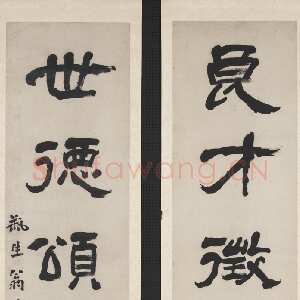 良才徵
世德頌
瓶生翁
Shufawang.CN